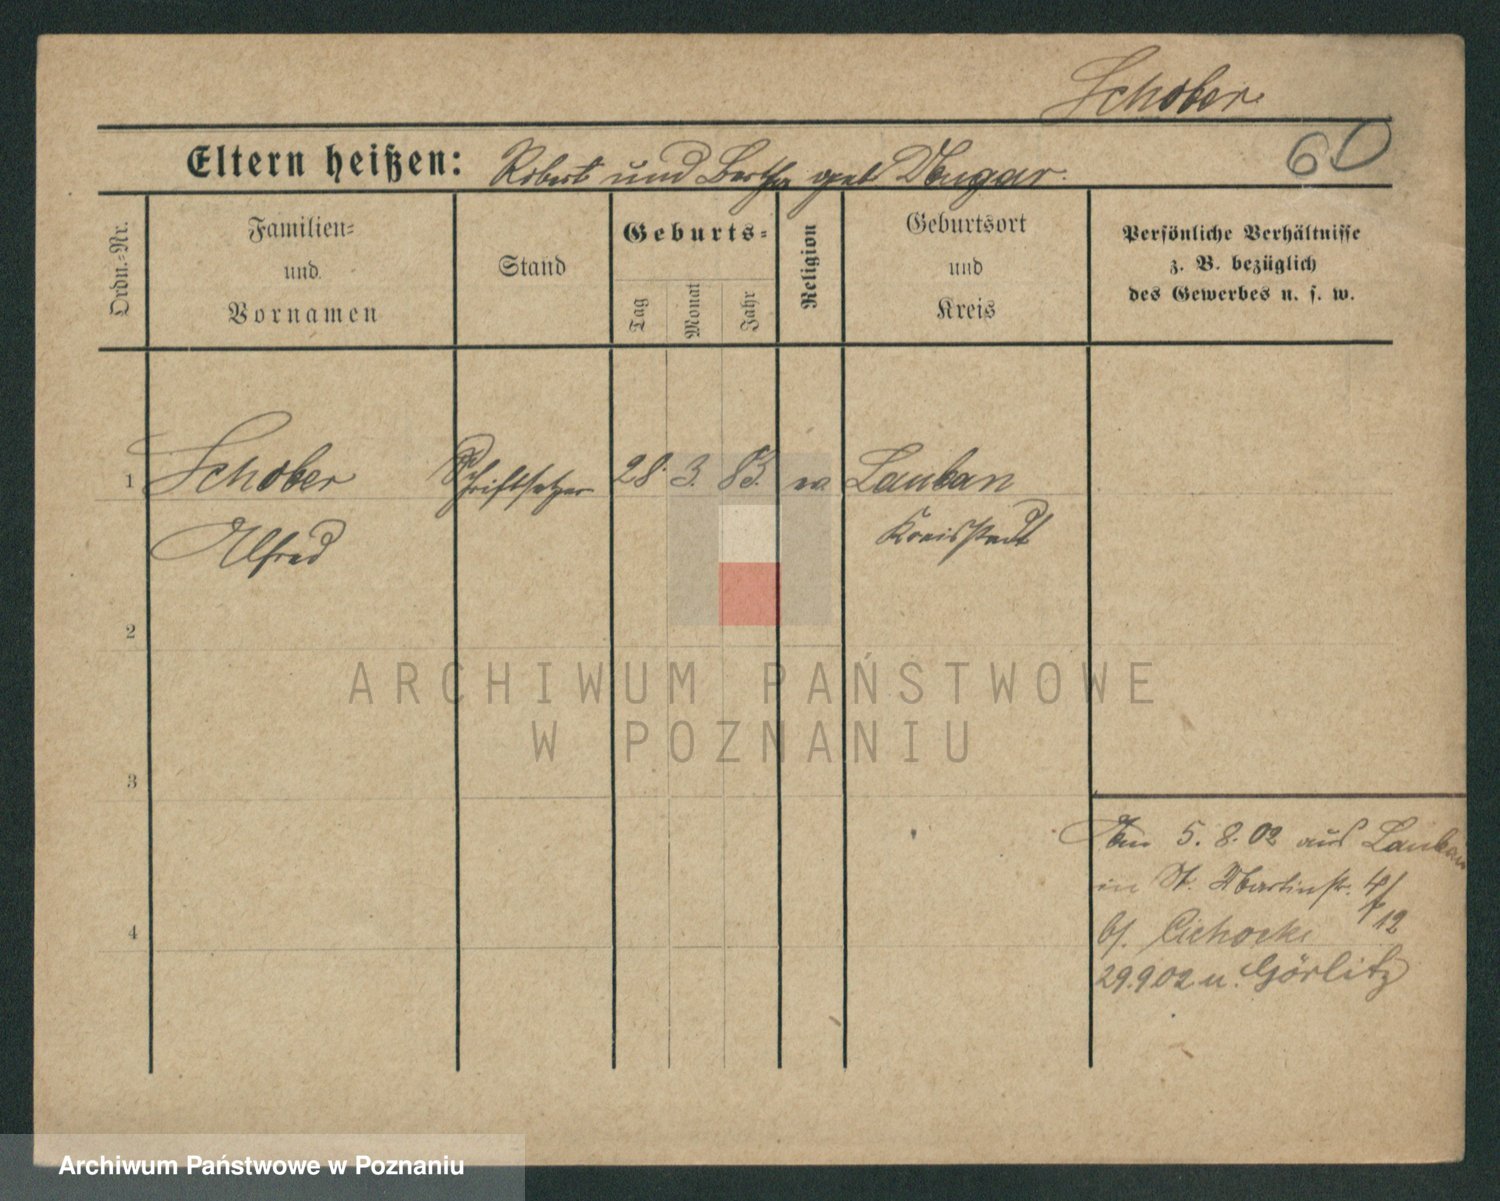 Schober
60
Eltern heißen: Robert und Bertha geb
Ordn.=Nr.
Familien=
und
Vornamen
Stand
Geburts=
Tag
Monat
Jahr
Religion
Geburtsort
und
Kreis
Persönliche Verhältnisse
z. B. bezüglich
des Gewerbes u. s. w.
1 Schober Schriftsetzer 28. 3. 83. ev. Lauban
Alfred Kreisstadt
2
3
4
Am 5. 8. 02 aus Lauban
in St. Martinstr. 4/
12
b/. Cichocki
29.9.02 n. Görlitz
ARCHIWUM PAŃSTWOWE
W POZNANIU
Archiwum Państwowe w Poznaniu